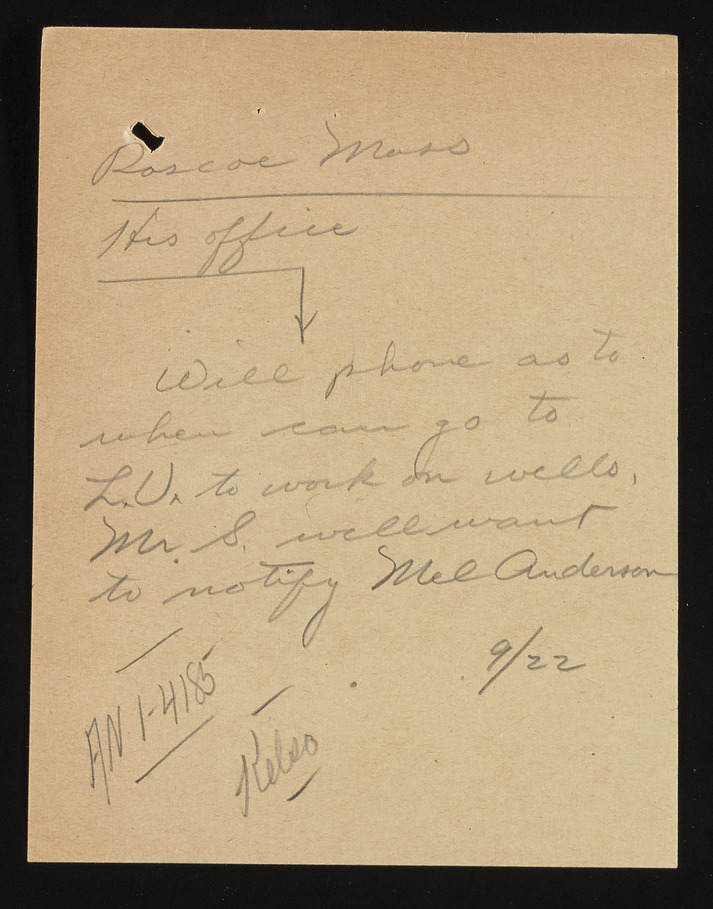 Roscoe Moss
His office
Will phone as to
when can go to
L.V. to work on wells.
Mr. S. will want
to notify Mel Anderson
9/22
AN 1-4185
Kelso